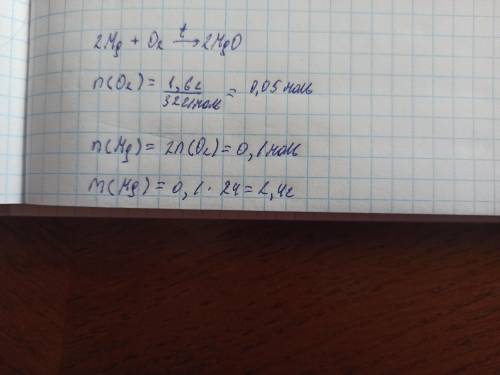 2Mg + O₂ —t→ 2MgO
n(O₂) = 1,6г / 32г/моль = 0,05 моль
n(Mg) = 2n(O₂) = 0,1 моль
m(Mg) = 0,1 · 24 = 2,4г